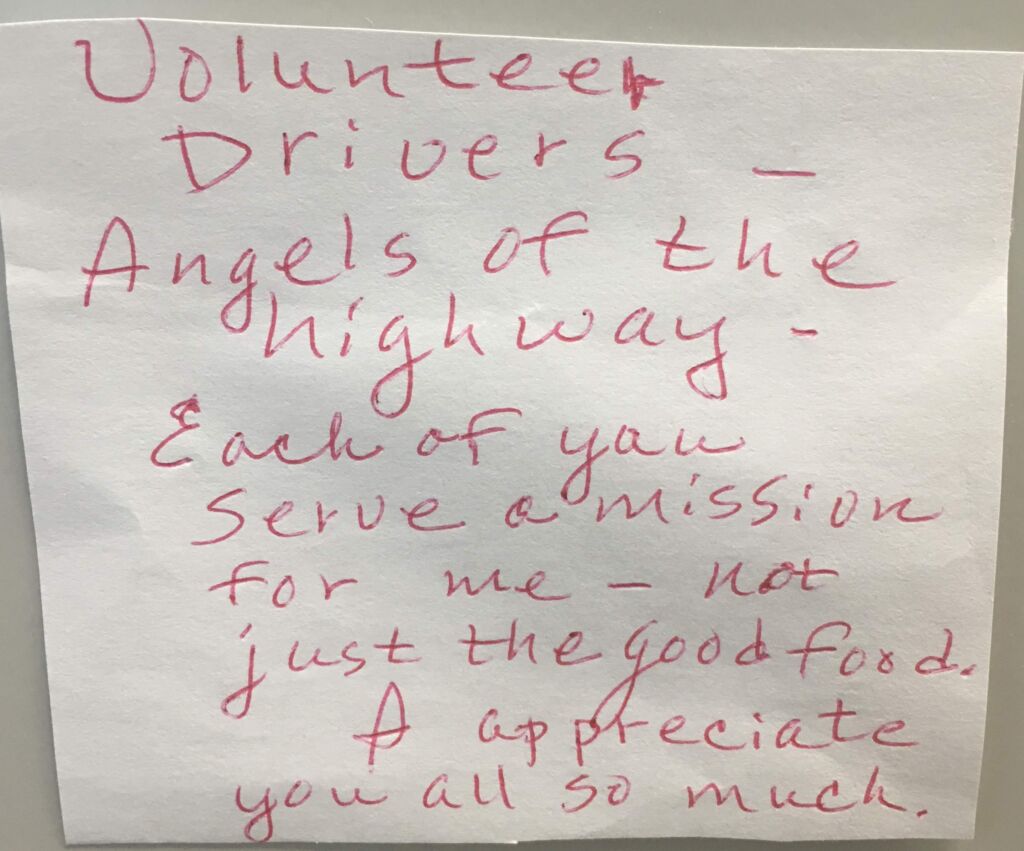 Volunteer
Drivers —
Angels of the
highway -
Each of you
serve a mission
for me — not
just the good food.
I appreciate
you all so much.